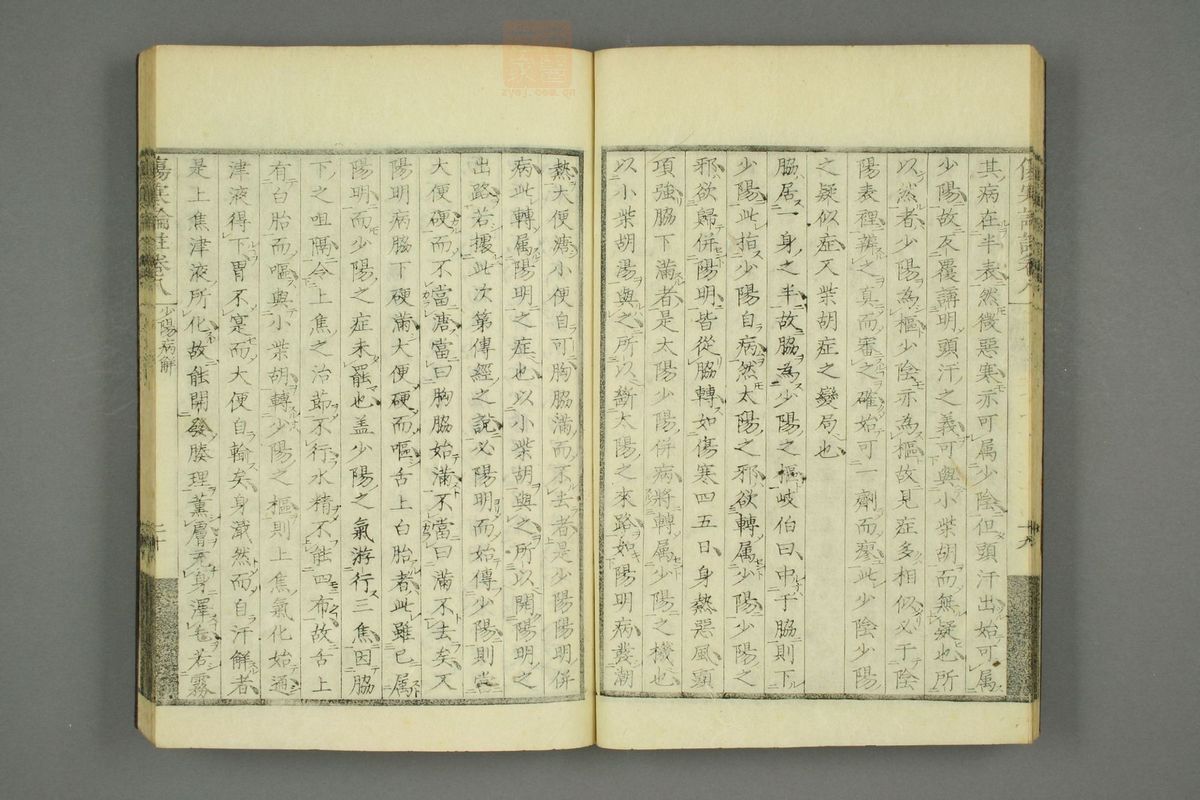 其病在半表然微惡寒亦可属少陰但頭汗出始可属
少陽故反覆講明頭汗之義可與小柴胡而無疑也所
以然者少陽為樞少陰亦為樞故見症多相似必于陰
陽表裡辨之真而審之確始可一劑而瘳此少陰少陽
之疑似症又柴胡症之變局也
脇居一身之半故脇為少陽之樞岐伯曰中于脇則下
少陽此指少陽自病然太陽之邪欲轉属少陽少陽之
邪欲歸併陽明皆從脇轉如傷寒四五日身熱惡風頭
項強脇下滿者是太陽少陽併病將轉属少陽之機也
以小柴胡湯與之所以斷太陽之來路如陽明病發潮
熱大便溏小便自可胸脇滿而不去者是少陽陽明併
病此轉属陽明之症也以小柴胡與之所以開陽明之
出路若據此次第傳經之說必陽明而始傳少陽則當
大便硬而不當溏當曰胸脇始滿不當曰滿不去矣又
陽明病脇下硬滿大便硬而嘔舌上白胎者此雖已属
陽明而少陽之症未罷也盖少陽之氣游行三焦因脇
下之咀隔令上焦之治節不行水精不能四布故舌上
有白胎而嘔與小柴胡轉少陽之樞則上焦氣化始通
津液得下胃不寔而大便自輸矣身濈然而自汗解者
是上焦津液所化故能開發腠理薰膚充身澤毛若霧
傷寒論註卷八
少陽病解
二十
傷寒論註卷八
十九
zyej.com.cn